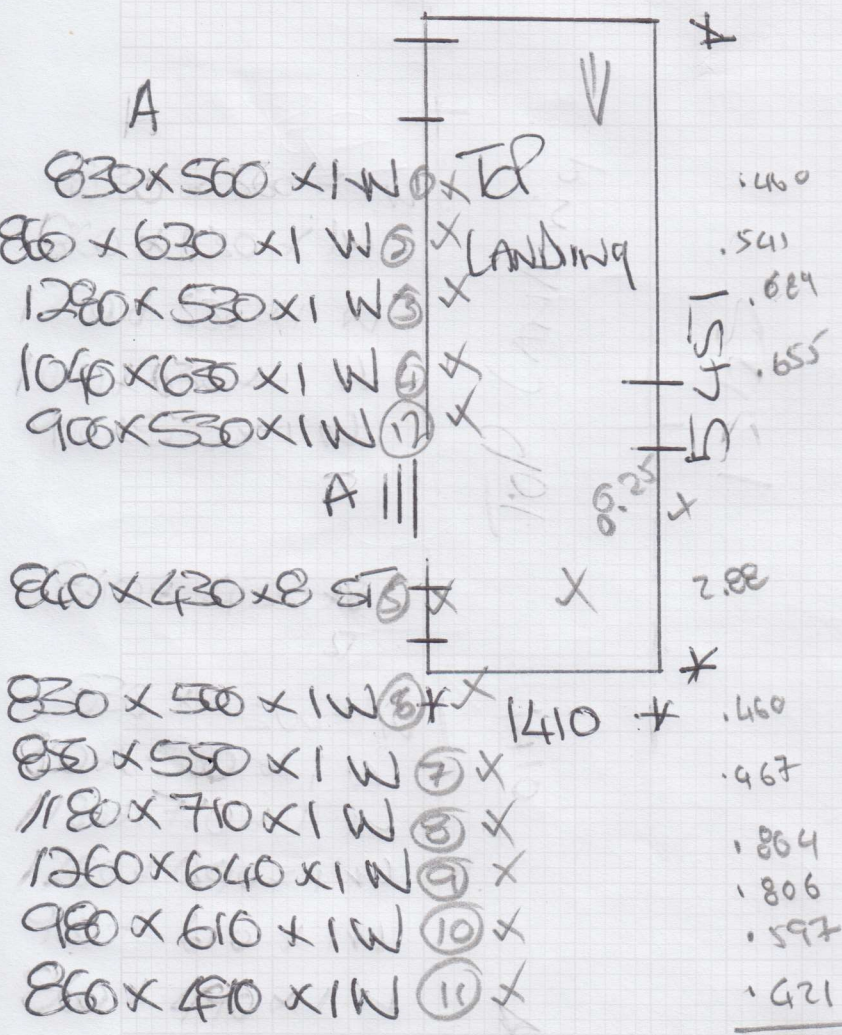 A
830x560 x1W ① x TOP .460
860 x 630 x1 W ② x LANDING .541
1280x 530x1 W ③ x .684
1040x630x1 W ④ x .655
900x530x1W ⑫ x 5451
A
6.25 x
840x430x8 ST ⑤ x x 2.88
830 x 500 x 1W x 1410 .460
850x550 x1 W ⑦ x .467
1180x710x1 W ⑧ x .864
1260x640x1W ⑨ x .806
980x610x1W ⑩ x .597
860x490x1W ⑪ x .421